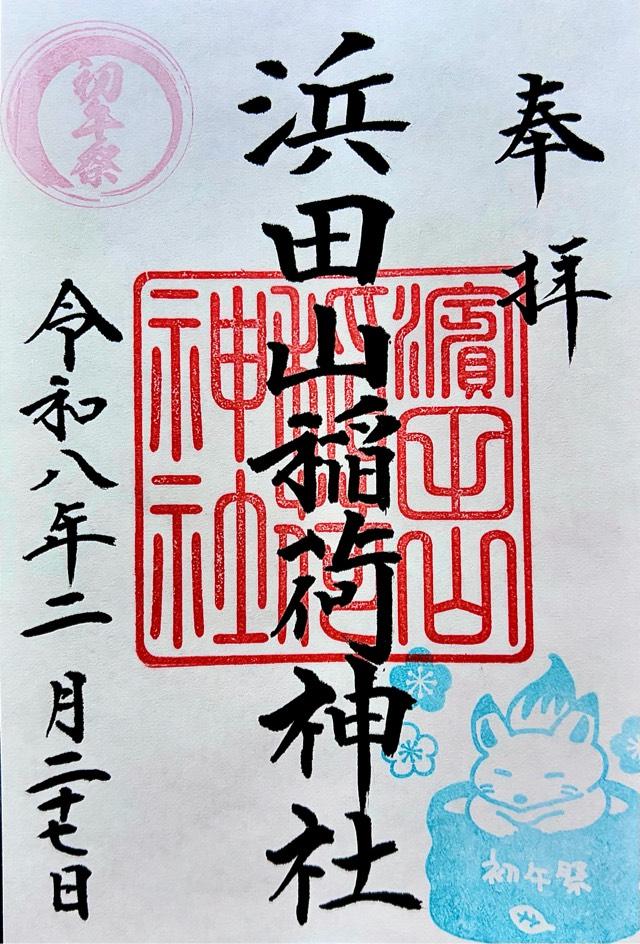 奉拝
浜田山稲荷神社
令和八年二月二十七日
初午祭
濱田山
稲荷
神社
初午祭